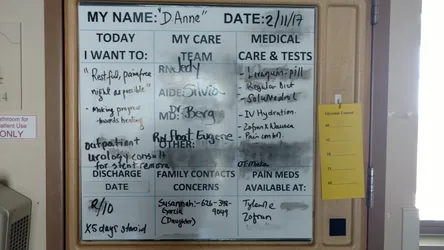 MY NAME: "D'Anne" DATE: 2/11/17
TODAY
I WANT TO:
"Restful, painfree
night as possible"
- Making progress
towards healing
outpatient
Urology consult
for stent removal
MY CARE
TEAM
RN: Jody
AIDE: Silvia
MD: Dr Berg
Eugene
OTHER:
MEDICAL
CARE & TESTS
- Levaquin-pill
- Regular Diet
- SoluMedrol
- IV Hydration
- Zofran & Nausea
- Pain control
DISCHARGE
DATE
2/10
x5 days steroid
FAMILY CONTACTS
CONCERNS
Susannah - 626-398-
Garcia 9049
(Daughter)
PAIN MEDS
AVAILABLE AT:
Zofran
Patient Use
ONLY